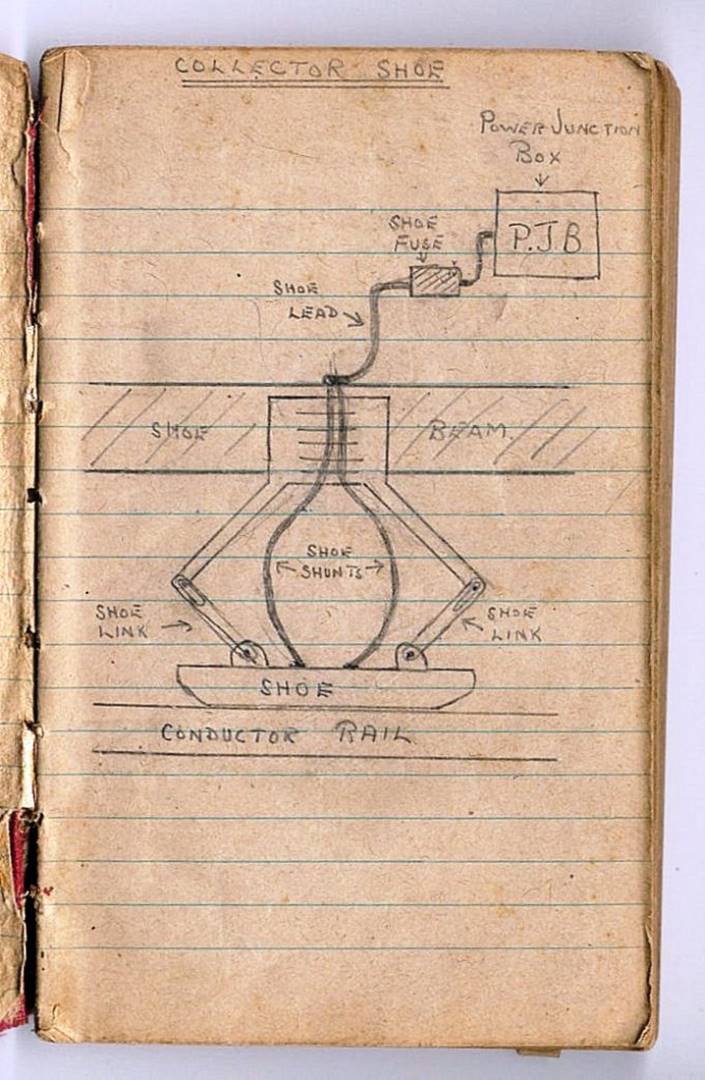 COLLECTOR SHOE
POWER JUNCTION
BOX
SHOE
FUSE
P.J.B
SHOE
LEAD
SHOE BEAM
SHOE
SHUNTS
SHOE
LINK
SHOE
LINK
SHOE
CONDUCTOR RAIL